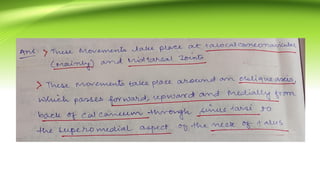 Ans: > These Movements take place at talocalcaneonavicular
(mainly) and midtarsal Joints
> These movements take place around an oblique axis
which passes forward, upward and Medially from
back of calcaneum through sinus tarsi to
the superomedial aspect of the neck of talus.